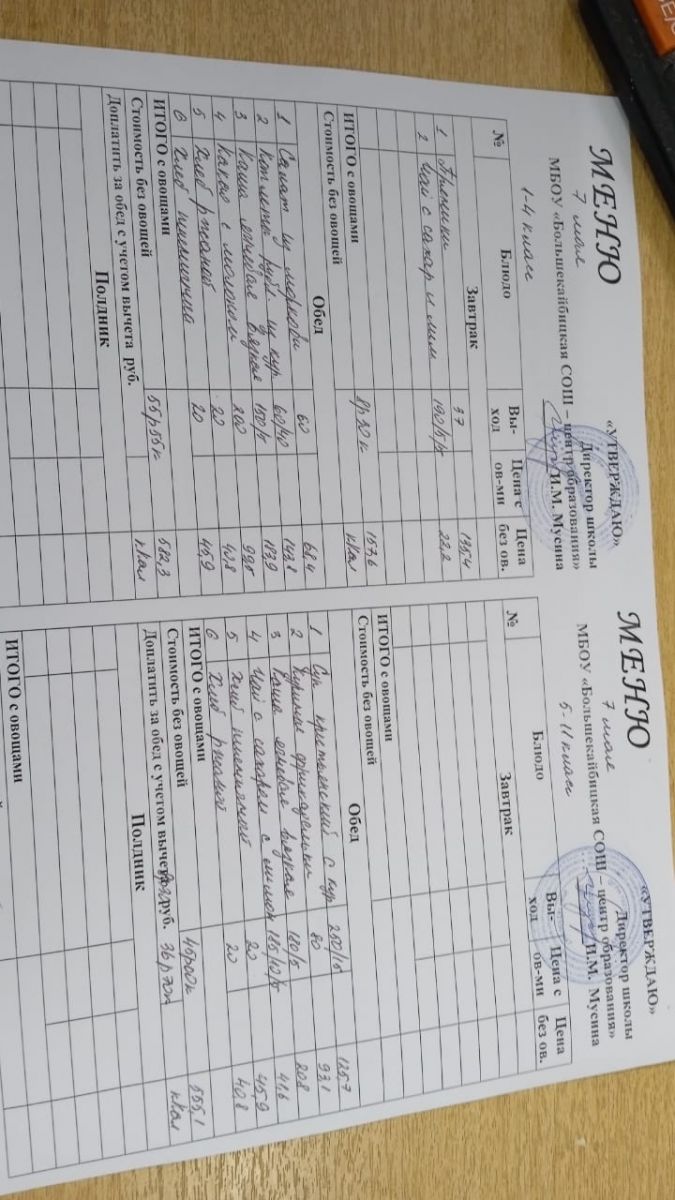 МЕНЮ
«УТВЕРЖДАЮ»
7 мая
Директор школы
МБОУ «Большекайбицкая СОШ – центр образования»
И.М. Мусина
1-4 класс
№ Блюдо Вы-ход Цена с ов-ми Цена без ов.
Завтрак
1 Пряники 37 135,4
2 Чай с сахар и лим 190/5/5 22,2
ИТОГО с овощами 157,6
Стоимость без овощей 8р30к ккал
Обед
1 Салат из моркови 60 68,4
2 Котлеты руб. из кур 60/40 143,8
3 Каша ячневая вязкая 150/5 183,9
4 Какао с молоком 200 99,5
5 Хлеб ржаной 20 40,8
6 Хлеб пшенична 20 45,9
ИТОГО с овощами 582,3
Стоимость без овощей ккал
Доплатить за обед с учетом вычета руб.
Полдник
МЕНЮ
«УТВЕРЖДАЮ»
7 мая
Директор школы
МБОУ «Большекайбицкая СОШ – центр образования»
И.М. Мусина
5-11 класс
№ Блюдо Вы-ход Цена с ов-ми Цена без ов.
Завтрак
ИТОГО с овощами
Стоимость без овощей
Обед
1 Суп крестьянский с кур 250/15 125,7
2 Куриные фрикадельки 80 93,1
3 Каша ячневая вязкая 180/5 208
4 Чай с сахаром с лимон 185/10/5 41,6
5 Хлеб пшеничный 20 45,9
6 Хлеб ржаной 20 40,8
ИТОГО с овощами 555,1
Стоимость без овощей ккал
Доплатить за обед с учетом вычета руб.
Полдник
ИТОГО с овощами